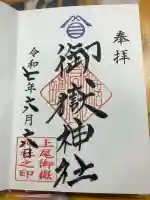 奉拝
御嶽神社
令和七年六月
上尾御嶽
神社之印